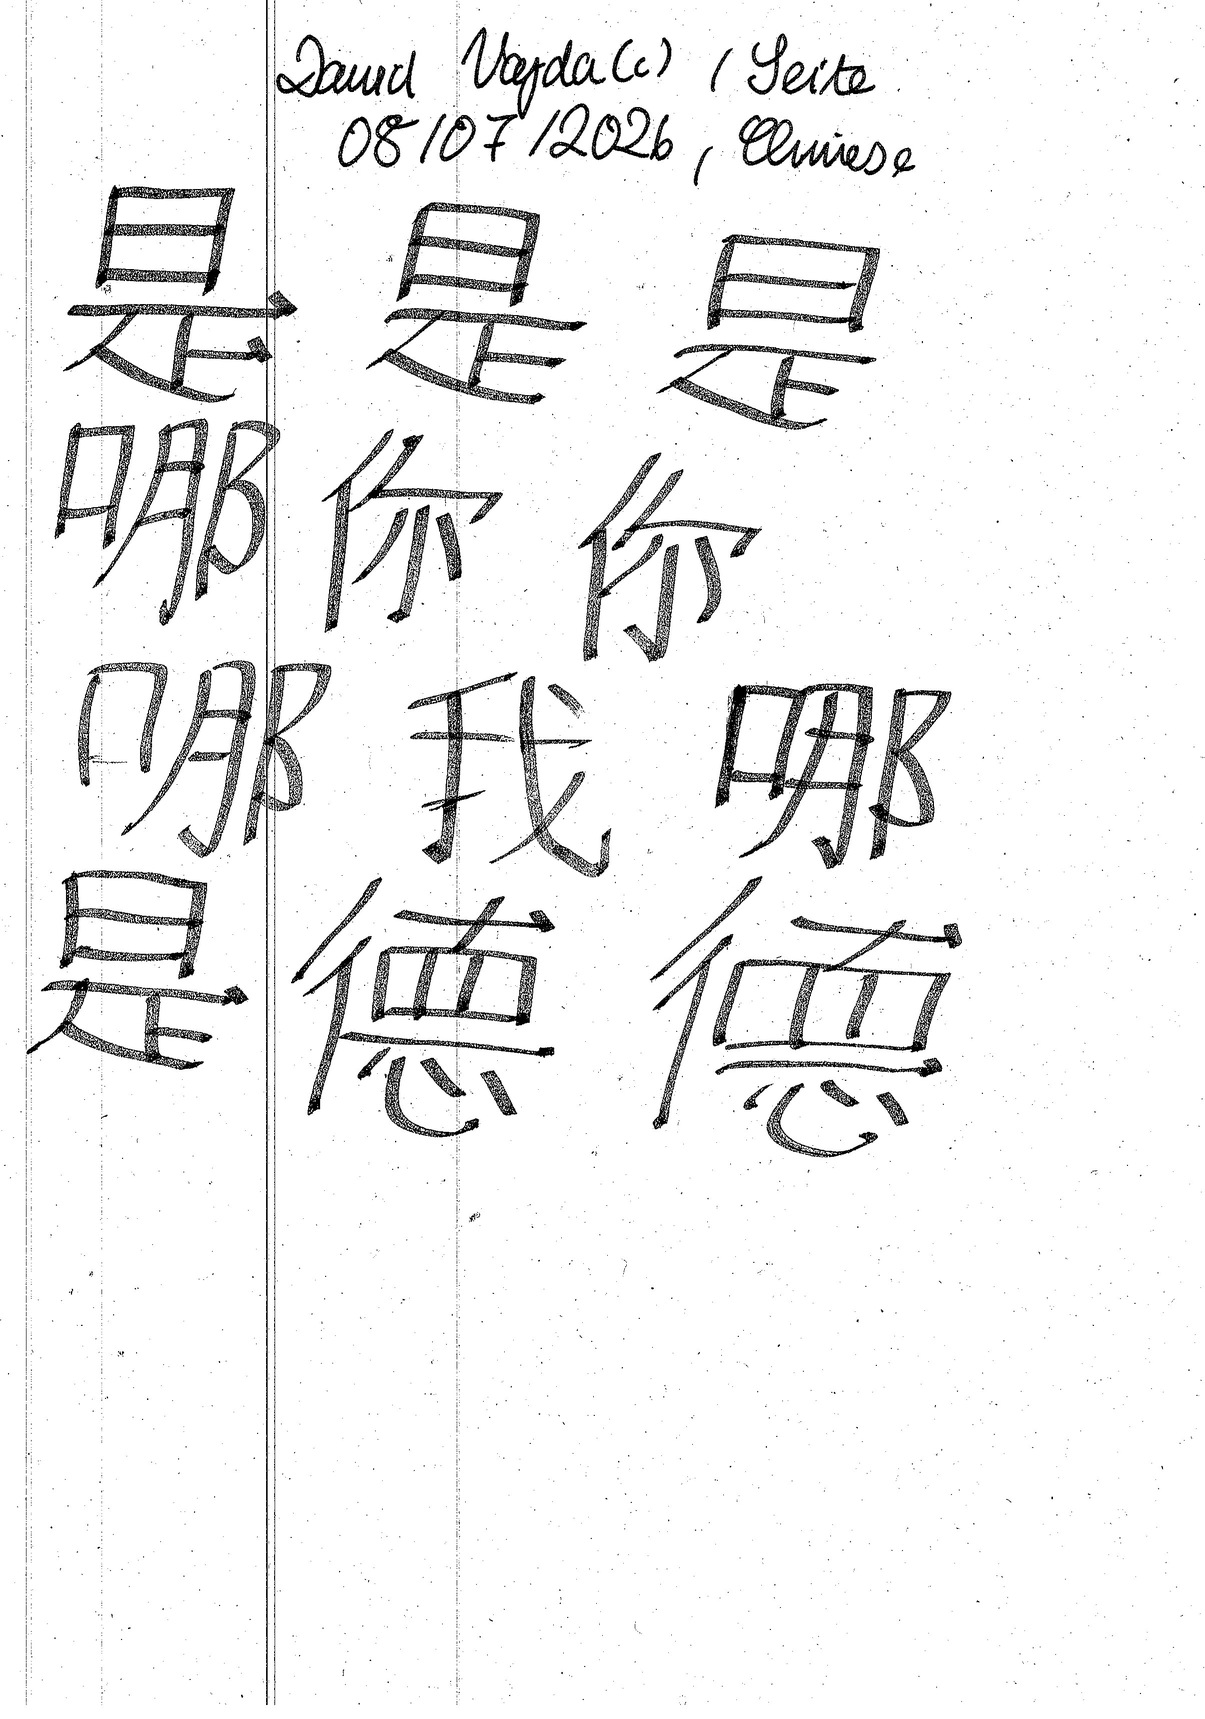 David Vajda (c) / Seite
08/07/2026, Chinese
是 是 是
哪 你 你
哪 我 哪
是 德 德